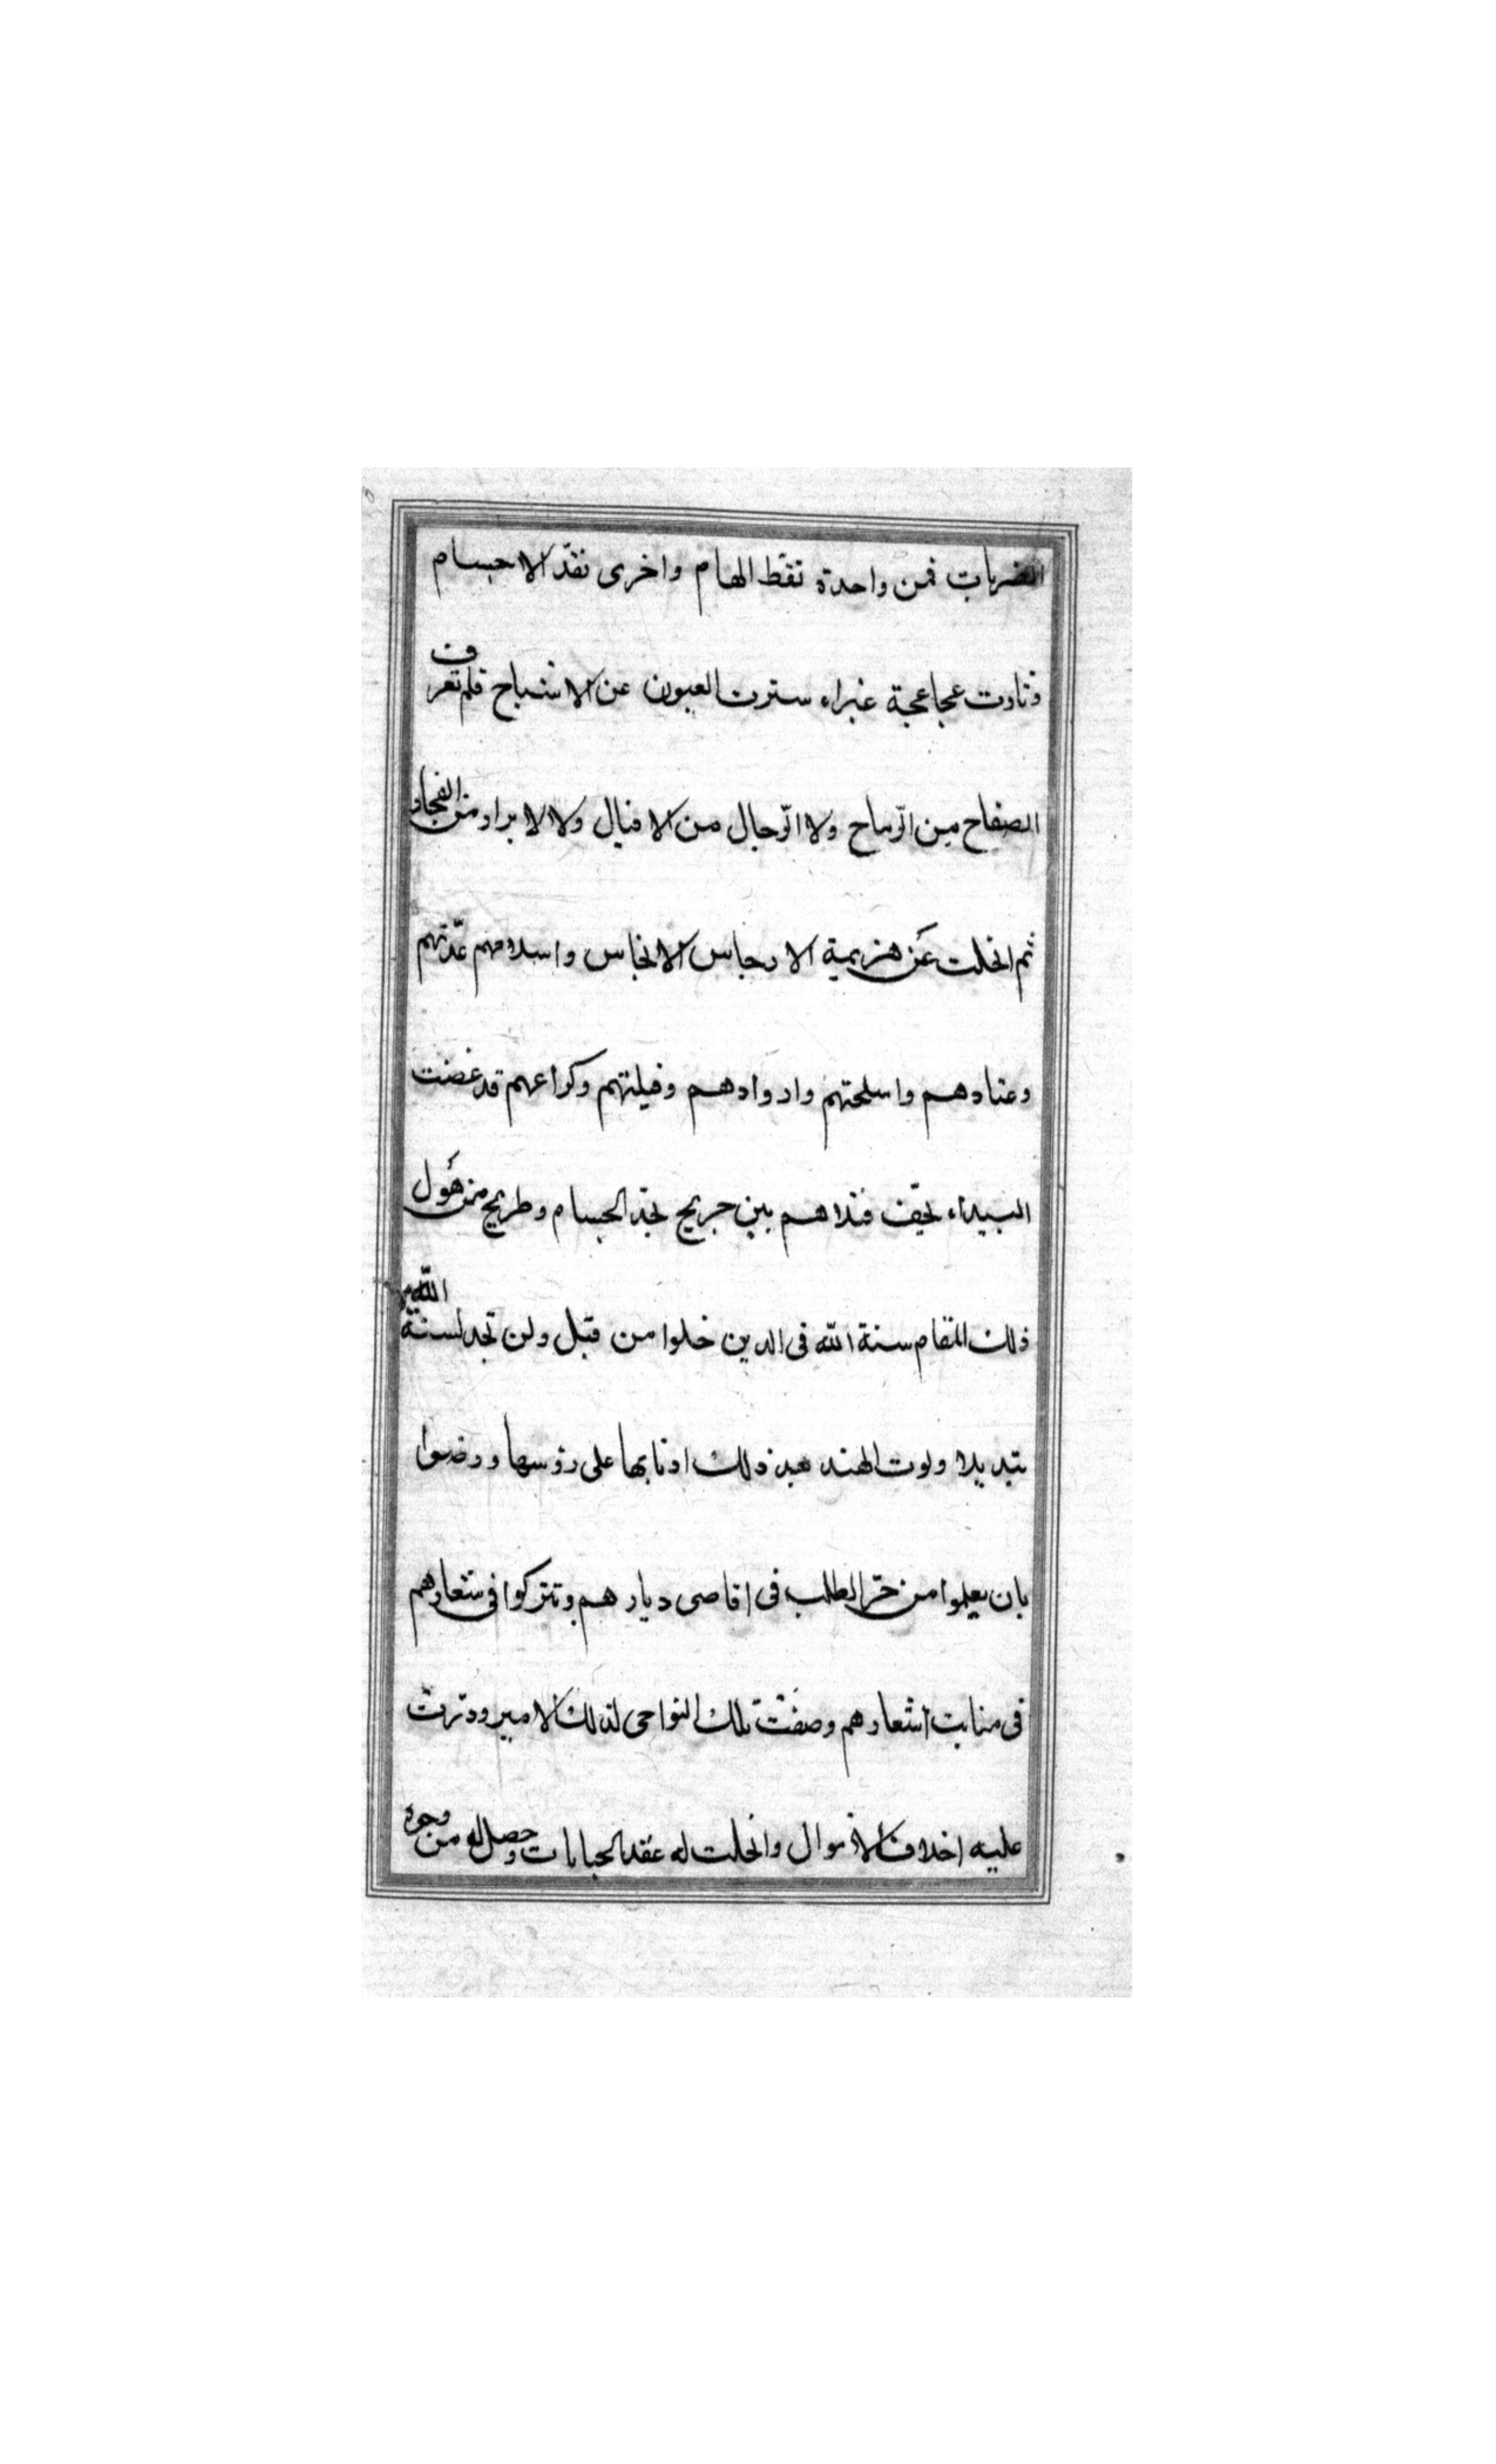 الضربات فمن واحدة تقط الهام واخرى تقدّ الاجسام
وثارت عجاعجة غبراء سترت العيون عن الاشباح فلم تعرف
الصفاح من الرّماح ولا الرّجال من الافيال ولا الابرار من الفجار
ثم انجلت عن هزيمة الارجاس الانجاس واسلامهم عدّتهم
وعتادهم واسلحتهم وازوادهم وفيلتهم وكراعهم قد غصّت
البيداء بجيف قتلاهم بين جريح بحدّ الحسام وطريح من هول
ذلك المقام سنة الله فى الذين خلوا من قبل ولن تجد لسنة الله
تبديلا ولوت الهند بعد ذلك اذنابها على رؤسها ورضوا
بان يعلموا من حرّ الطلب فى اقاصى ديارهم ويتركوا فى شعارهم
فى منابت اشعارهم وصفَتْ تلك النواحى لذلك الامير ودرّت
عليه اخلاف الاموال وانحلت له عقد الجبايات وحصل له من وجوه